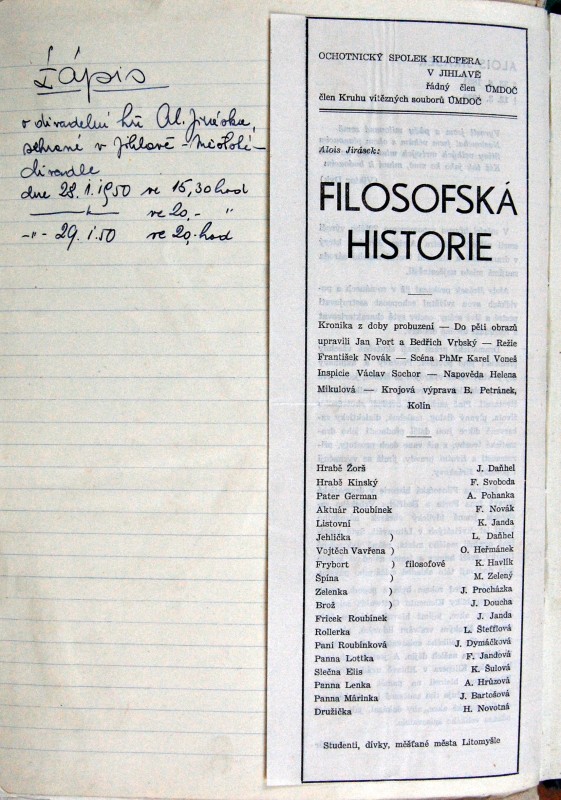 Zápis
o divadelní hře Al. Jiráska,
sehrané v Jihlavě
divadle
dne 28.1.1950 ve 15,30 hod
ve 20,- "
-"- 29.1.50 ve 20.hod
OCHOTNICKÝ SPOLEK KLICPERA
V JIHLAVĚ
řádný člen ÚMDOČ
člen Kruhu vítězných souborů ÚMDOČ
Alois Jirásek:
FILOSOFSKÁ
HISTORIE
Kronika z doby probuzení — Do pěti obrazů
upravili Jan Port a Bedřich Vrbský — Režie
František Novák — Scéna PhMr Karel Voneš
Inspicie Václav Sochor — Napověda Helena
Mikulová — Krojová výprava B. Petránek,
Kolín
Hrabě Žorž J. Daňhel
Hrabě Kinský F. Svoboda
Pater German A. Pohanka
Aktuár Roubínek F. Novák
Listovní K. Janda
Jehlička ) L. Daňhel
Vojtěch Vavřena ) O. Heřmánek
Frybort ) filosofové K. Havlík
Špína ) M. Zelený
Zelenka ) J. Procházka
Brož ) J. Doucha
Fricek Roubínek J. Janda
Rollerka L. Štefflová
Paní Roubínková J. Dymáčková
Panna Lottka F. Jandová
Slečna Elis K. Šulová
Panna Lenka A. Hrůzová
Panna Márinka J. Bartošová
Družička H. Novotná
Studenti, dívky, měšťané města Litomyšle